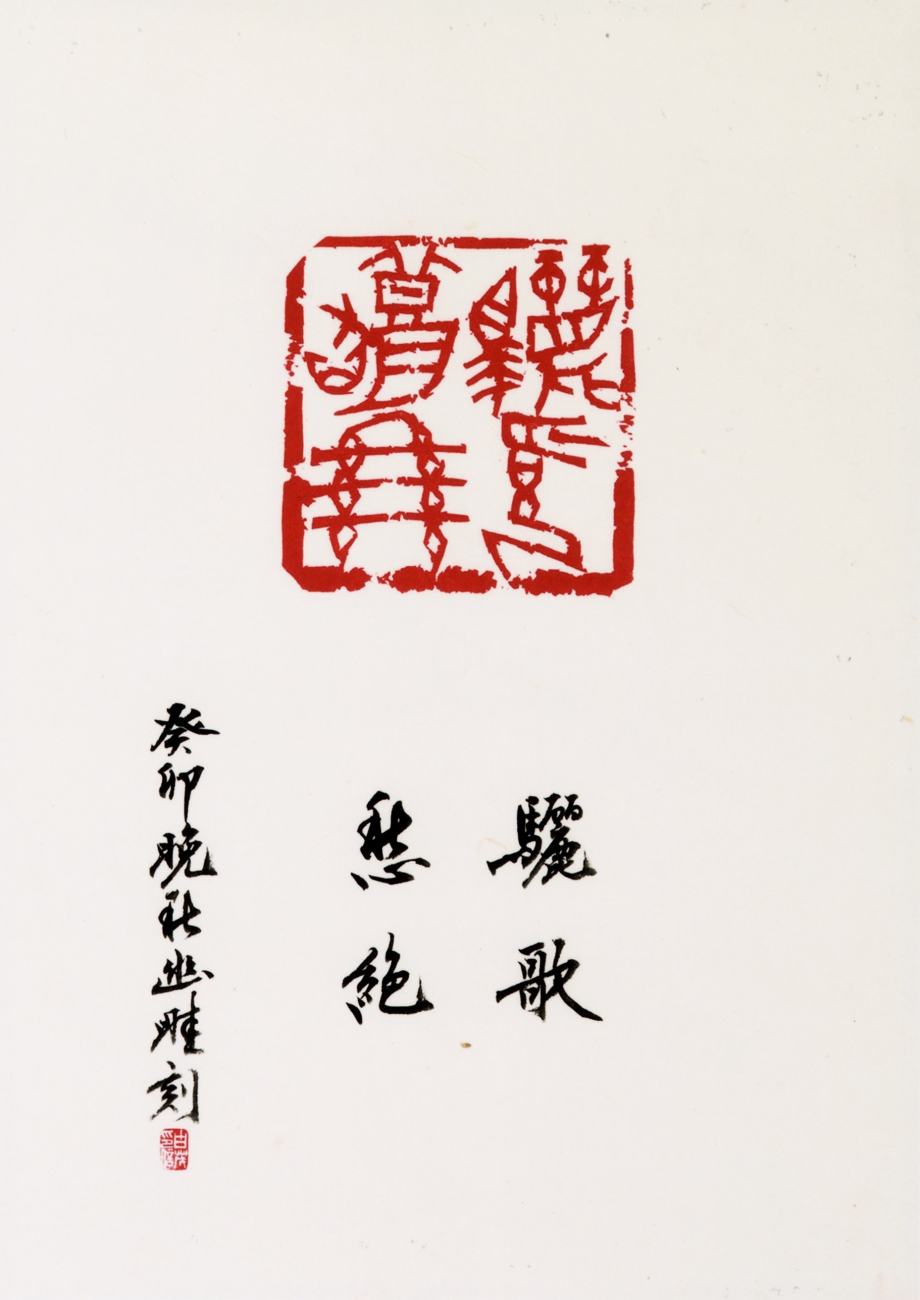 驪歌
愁絶
癸卯晚秋幽畦刻